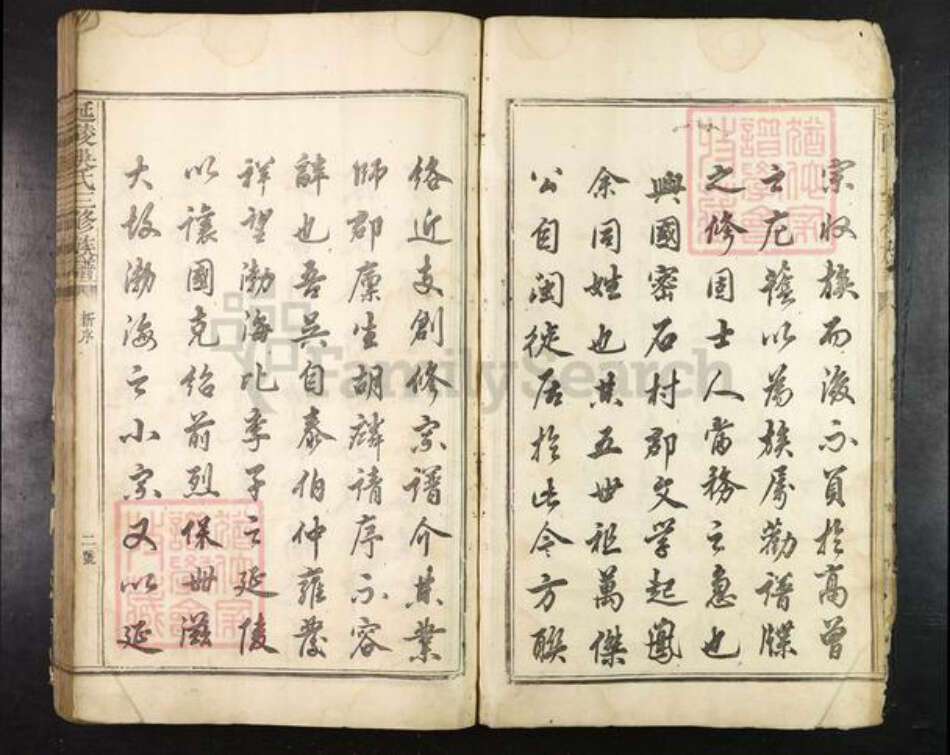 宗收族而後不負於高曾
云尼雖以為族屬勸譜牒
之修固士人當務之急也
興國密石村郡文學起鳳
余同姓也其五世祖萬傑
公自閩徙居於此今方聯
絡近支創修宗譜介其業
師郡廩生胡麟請序不容
辭也吾吳自泰伯仲雍發
祥望渤海比季子之延陵
以讓國克紹前烈保世滋
大故渤海之小宗又以延
延陵吳氏三修族譜
新序
二號
FamilySearch